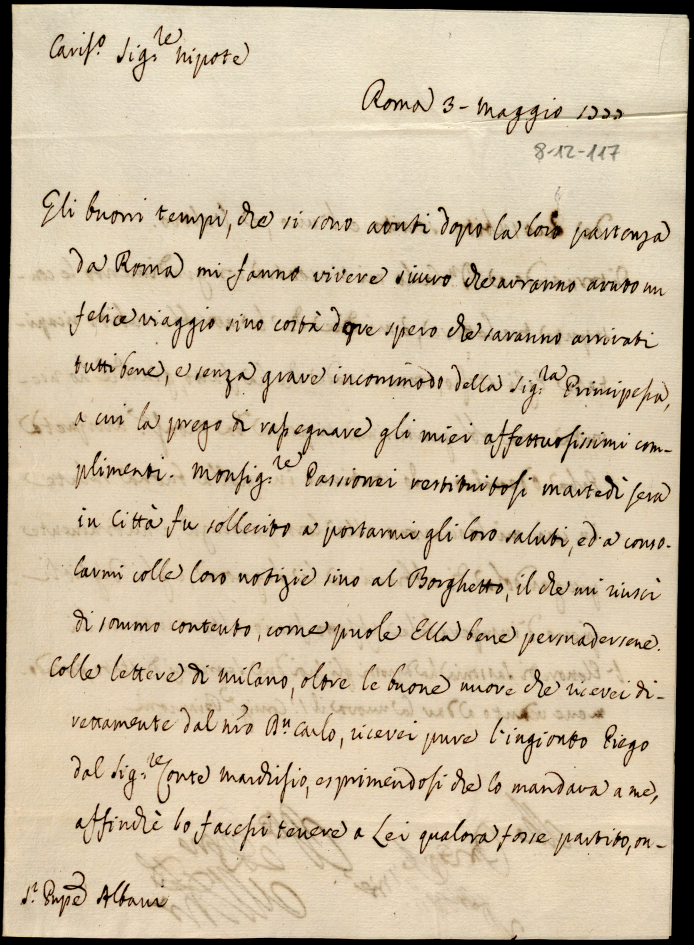 Cariss.o Sig.re Nipote
Roma 3 - Maggio 1777
8-12-117
Gli buoni tempi, che si sono avuti dopo la loro partenza
da Roma mi fanno vivere sicuro che avranno avuto un
felice viaggio sino costà dove spero che saranno arrivati
tutti bene, e senza grave incommodo della Sig.ra Principessa,
a cui la prego di rassegnare gli miei affettuosissimi com-
plimenti. Monsig.re Passionei restituitosi martedì sera
in Città fu sollecito a portarmi gli loro saluti, ed a conso-
larmi colle loro notizie sino al Borghetto, il che mi riuscì
di sommo contento, come puole Ella bene persuadersene.
Colle lettere di Milano, oltre le buone nuove che ricevei di-
rettamente dal nro Bn Carlo, ricevei pure l'ingionto Piego
dal Sig.re Conte Mardrisio, esprimendosi che lo mandava a me,
affinchè lo facessi tenere a Lei qualora fosse partito, on-
S.r Pnpe Albani